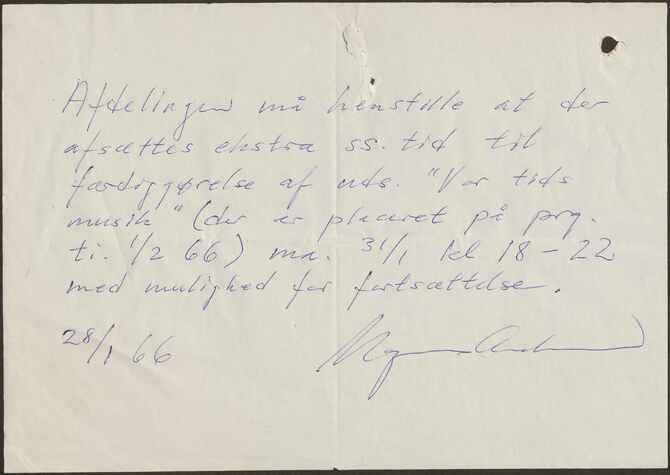 Afdelingen må henstille at der
afsættes ekstra ss. tid til
færdiggørelse af uds. "Vor tids
musik" (der er placeret på prg.
ti. 1/2 66) ma. 31/1 kl 18 - 22
med mulighed for fortsættelse.
28/1 66